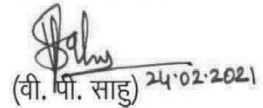 (वी. पी. साहु) 24.02.2021